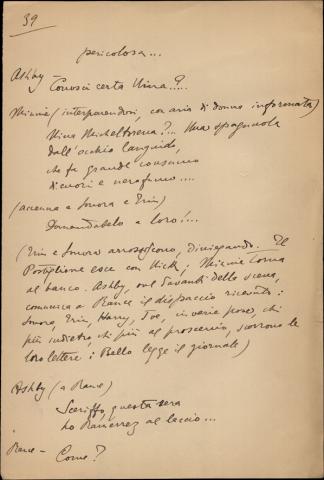 39
pericolosa...
Ashby - Conosci certa Nina?..
Minnie (interponendosi, con aria di donna informata)
Nina Micheltorena?... Una spagnuola
dall'occhio languido,
che fa grande consumo
di cuori e nerofumo....
(accenna a Sonora e Trin)
Domandatelo a loro!...
(Trin e Sonora arrossiscono, divagando. Il
Postiglione esce con Nick; Minnie torna
al banco. Ashby, sul davanti della scena,
comunica a Rance il dispaccio ricevuto:
Sonora, Trin, Harry, Joe, in varie pose, chi
più indietro, chi più al proscenio, scorrono le
loro lettere; Bello legge il giornale)
Ashby (a Rance)
Sceriffo, questa sera
ho Ramerrez al laccio...
Rance - Come?